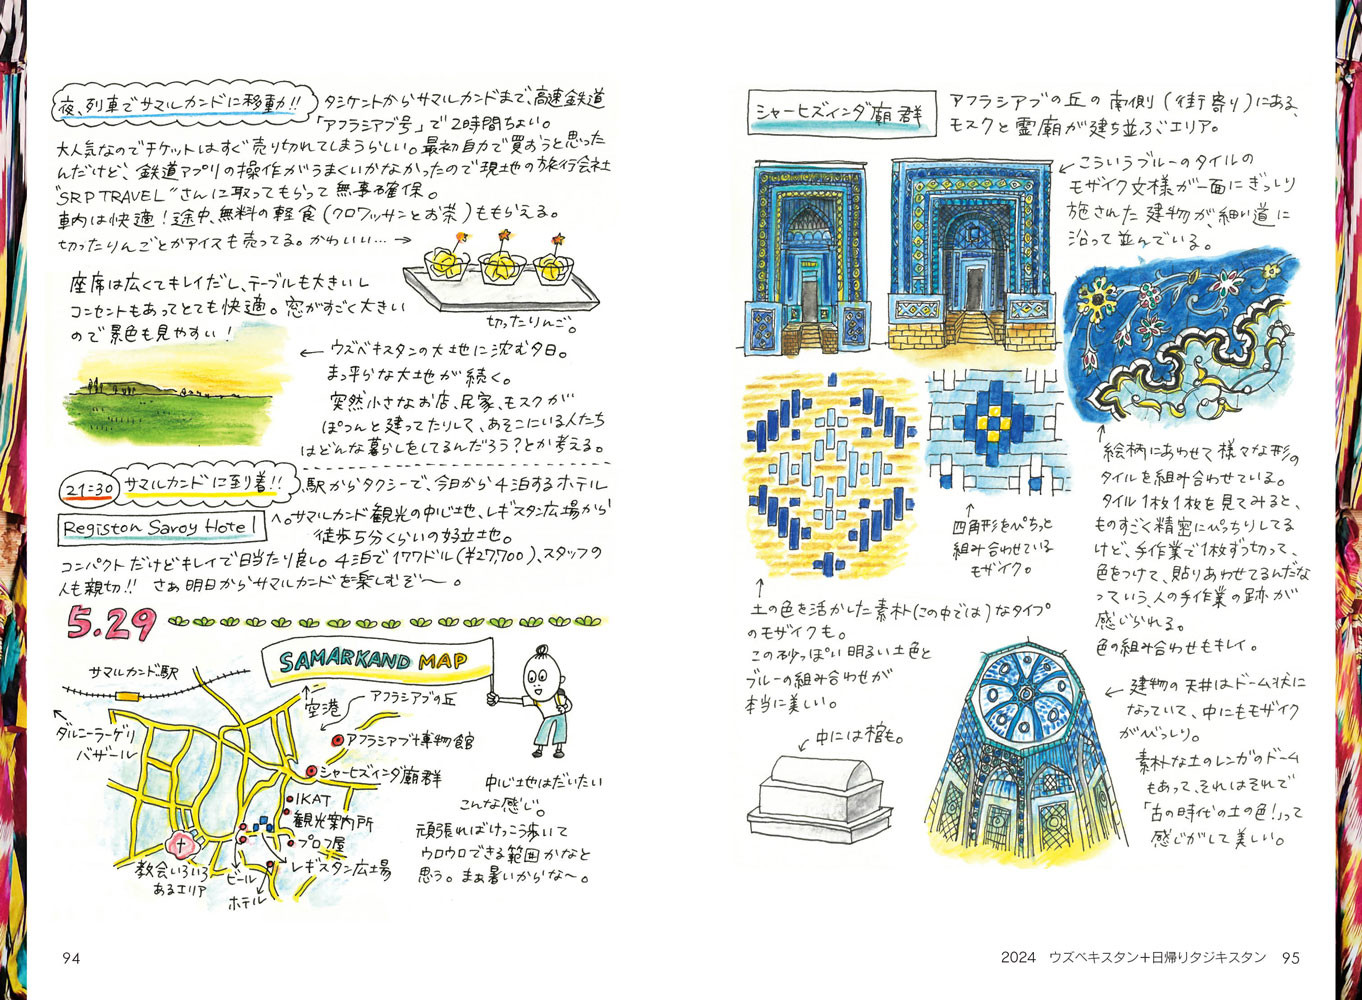 夜、列車でサマルカンドに移動!!
タシケントからサマルカンドまで、高速鉄道
「アフラシアブ号」で2時間ちょい。
大人気なのでチケットはすぐ売り切れてしまうらしい。最初自力で買おうと思った
んだけど、鉄道アプリの操作がうまくいかなかったので現地の旅行会社
"SRP TRAVEL"さんに取ってもらって無事確保。
車内は快適！途中、無料の軽食(クロワッサンとお茶)ももらえる。
切ったりんごとかアイスも売ってる。かわいい…→
座席は広くてキレイだし、テーブルも大きいし
コンセントもあってとても快適。窓がすごく大きい
ので景色も見やすい！
切ったりんご。
← ウズベキスタンの大地に沈む夕日。
まっ平らな大地が続く。
突然小さなお店、民家、モスクが
ぽつんと建ってたりして、あそこにいる人たち
はどんな暮らしをしてるんだろう？とか考える。
21:30 サマルカンドに到着!!
、駅からタクシーで、今日から4泊するホテル
Registon Saroy Hotel
へ。サマルカンド観光の中心地、レギスタン広場から
徒歩5分くらいの好立地。
コンパクトだけどキレイで日当たり良し。4泊で177ドル(¥27,700)、スタッフの
人も親切!! さぁ明日からサマルカンドを楽しむぞ〜。
5.29
SAMARKAND MAP
サマルカンド駅
ダルニーラーゲリ
バザール
空港
アフラシアブの丘
アフラシアブ博物館
シャーヒズインダ廟群
IKAT
観光案内所
プロフ屋
レギスタン広場
教会いろいろ
あるエリア
ビール
ホテル
中心地はだいたい
こんな感じ。
頑張ればけっこう歩いて
ウロウロできる範囲かなと
思う。まぁ暑いからな〜。
94
シャーヒズインダ廟群
アフラシアブの丘の南側(街寄り)にある、
モスクと霊廟が建ち並ぶエリア。
こういうブルーのタイルの
モザイク文様が一面にぎっしり
施された建物が、細い道に
沿って並んでいる。
絵柄にあわせて様々な形の
タイルを組み合わせている。
タイル1枚1枚を見てみると、
ものすごく精密にぴっちりしてる
けど、手作業で1枚ずつ切って、
色をつけて、貼りあわせてるんだな
っていう、人の手作業の跡が
感じられる。
色の組み合わせもキレイ。
四角形をぴちっと
組み合わせている
モザイク。
土の色を活かした素朴(この中では)なタイプ
のモザイクも。
この砂っぽい明るい土色と
ブルーの組み合わせが
本当に美しい。
中には棺も。
建物の天井はドーム状に
なっていて、中にもモザイク
がびっしり。
素朴な土のレンガのドーム
もあって、それはそれで
「古の時代の土の色！」って
感じがして美しい。
2024 ウズベキスタン+日帰りタジキスタン 95